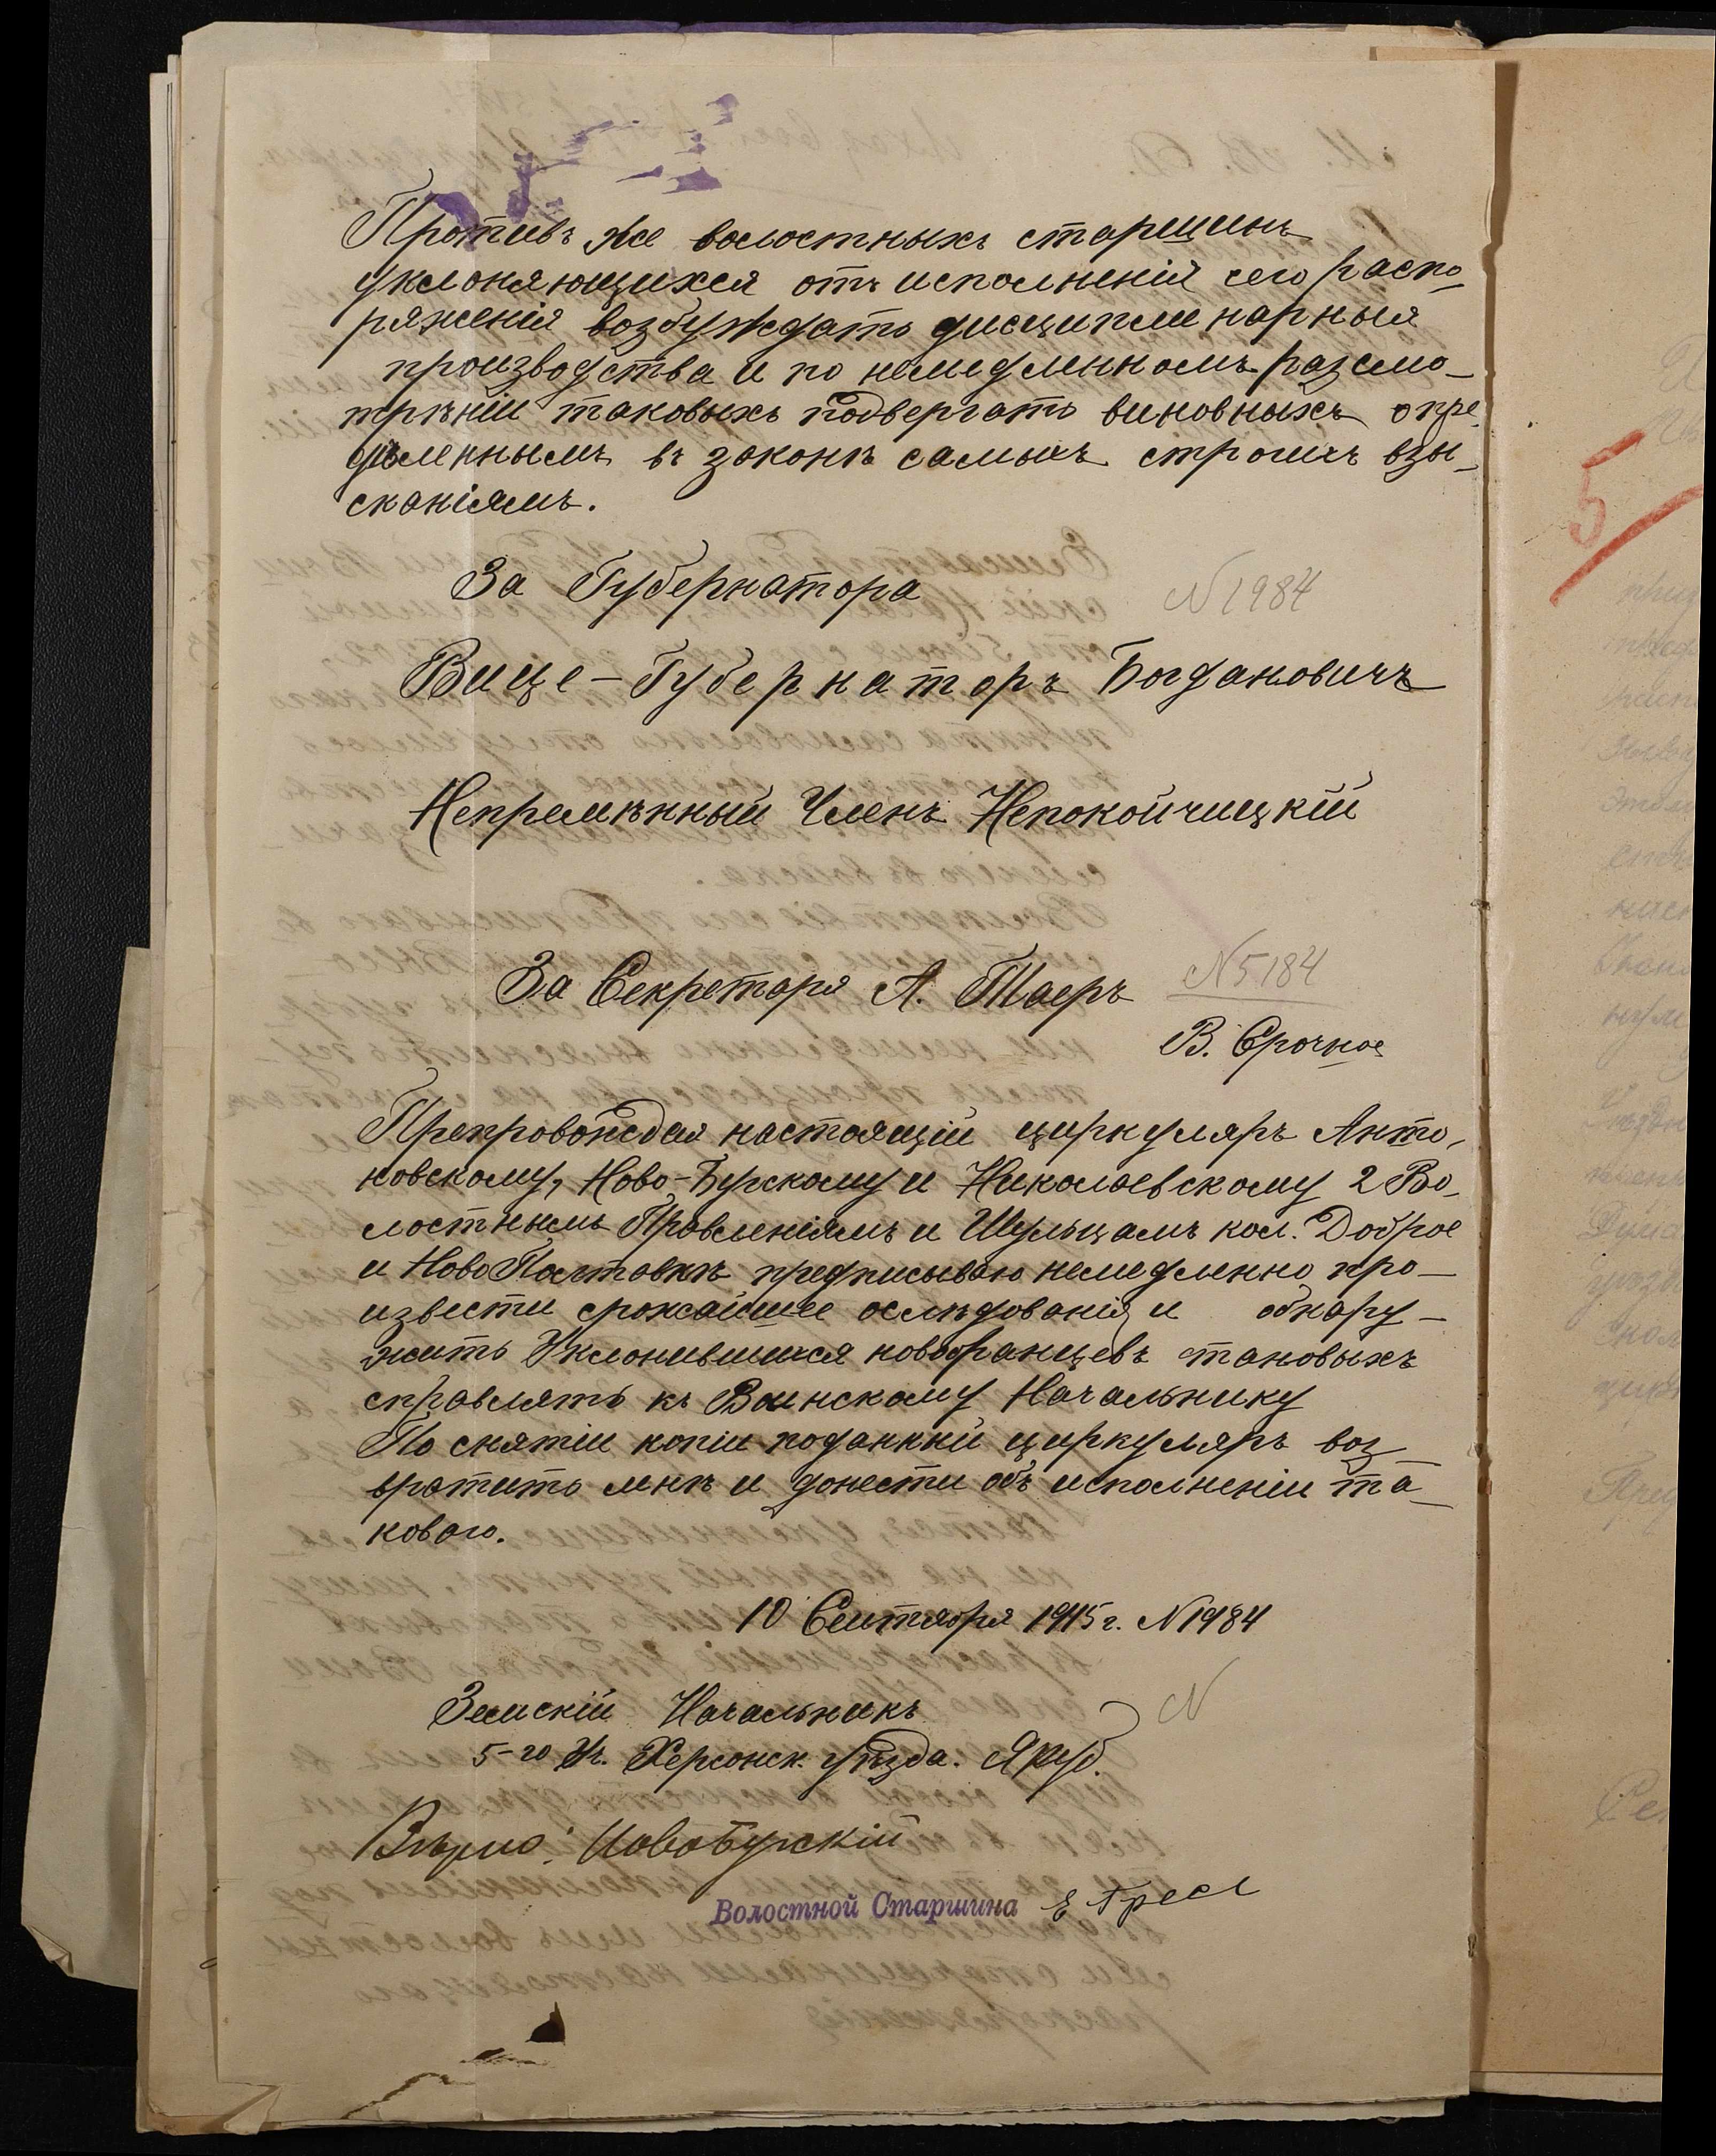 Противъ же волостныхъ старшинъ
уклоняющихся отъ исполненія сего распо-
ряженія возбуждать дисциплинарныя
производства и по немедленномъ разсмо-
трѣніи таковыхъ подвергать виновныхъ опре-
дѣленнымъ въ законѣ самымъ строгимъ взы-
сканіямъ.
За Губернатора
N 1984
Вице-Губернаторъ Богдановичъ
Непремѣнный Членъ Непокойчицкій
За Секретаря А.
N 5184
В. Срочное
Препровождая настоящій циркуляръ Анто-
новскому, Ново-Бугскому и Николаевскому 2 Во-
лостнымъ Правленіямъ и Шульцамъ кол. Доброе
и НовоПолтавкѣ предписываю немедленно про-
извести строжайшее и обнару-
жить уклонившихся новобранцевъ таковыхъ
справлять къ Воинскому Начальнику
По снятіи копіи поданный циркуляръ воз-
вратить мнѣ и донести объ исполненіи та-
кового.
10 Сентября 1915 г. N 1984
Земскій Начальникъ
N
5-го Уч. Херсонск. уѣзда.
Вѣрно: Новобугскій
Волостной Старшина
5